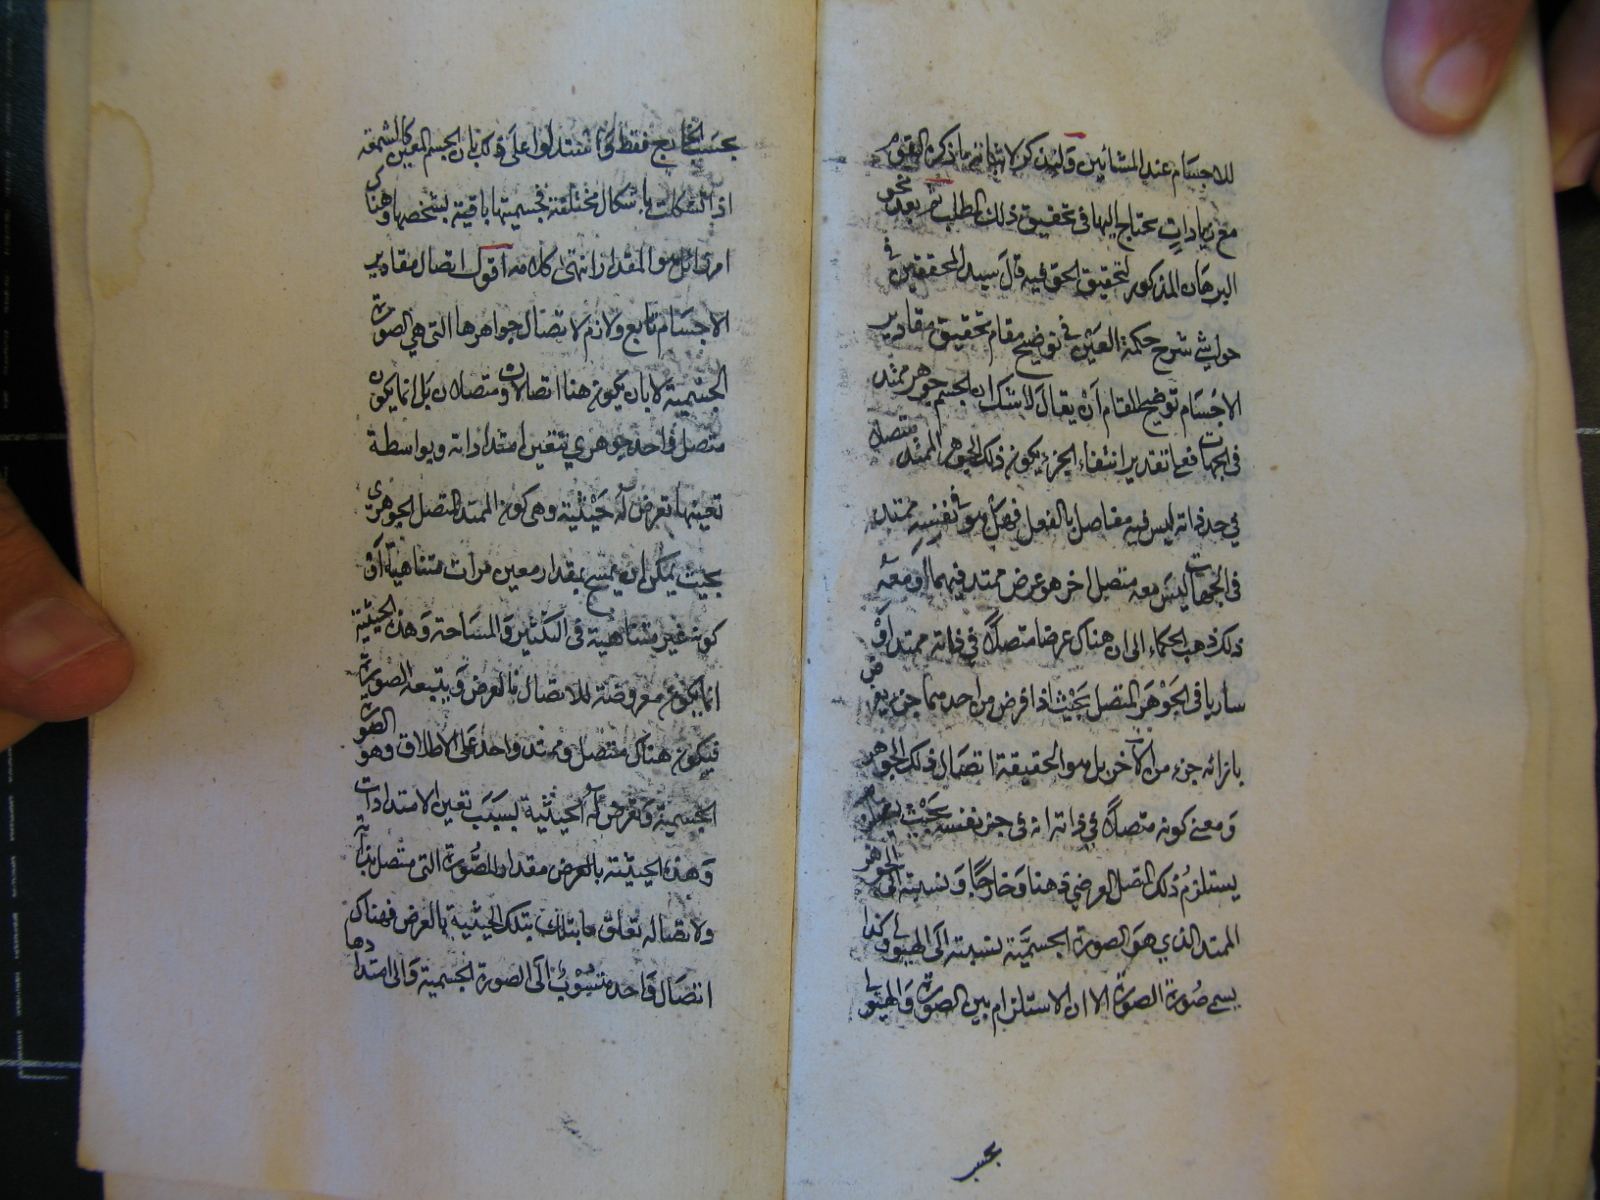 للاجسام عند المشائين ولنذكر لاثباته ما ذكره القوم
مع زيادات يحتاج اليها في تحقيق ذلك المطلب ثم بعد نحو
البرهان المذكور لتحقيق الحق فيه قال سيد المحققين في
حواشي شرح حكمة العين في توضيح مقام تحقيق مقادير
الاجسام توضيح المقام ان يقال لا شك ان الجسم جوهر ممتد
في الجهات فعلى تقدير انتفاء الجزء يكون ذلك الجوهر الممتد متصلا
في حد ذاته ليس فيه مفاصل بالفعل فهل هو في نفسه ممتد
في الجهات ليس معه متصل اخر هو عرض ممتد فيهما او معه
ذلك ذهب الحكماء الى ان هناك عرضا متصلا في ذاته ممتدا و
ساريا في الجوهر المتصل بحيث اذا فرض من احدهما جزء يفرض
بازائه جزء من الآخر بل هو الحقيقة اتصال ذلك الجوهر
ومعنى كونه متصلا في ذاته انه في نفسه بحيث
يستلزم ذلك المتصل العرضي ذهنا وخارجا ونسبته الى الجوهر
الممتد الذي هو الصورة الجسمية نسبته الى الهيولى وكذا
يسمى صورة الصورة الا ان الاستلزام بين الصورة والهيولى
بحسب
بحسب الخارج فقط واستدلوا على ذلك بان الجسم المعين كالشمعة
اذا تشكلت باشكال مختلفة فجسميتها باقية بشخصها وهناك
امر زائل هو المقدار انتهى كلامه اقول اتصال مقادير
الاجسام تابع ولازم لاتصال جواهرها التي هي الصورة
الجسمية لا بان يكون هنا اتصالان ومتصلان بل انما يكون
متصل واحد جوهري تتعين امتداداته وبواسطة
تعينها تعرض له حيثية وهي كون الممتد المتصل الجوهري
بحيث يمكن ان يمسح بمقدار معين مرات متناهية او
كونه غير متناهية في التكثير والمساحة وهذه الحيثية
انما يكون معروضة للاتصال بالعرض وبتبعه الصورية
فيكون هناك متصل وممتد واحد على الاطلاق وهو الصورة
الجسمية وتعرض له الحيثية بسبب تعين الامتدادات
وهذه الحيثية بالعرض مقدار للصورة التي متصل بذاته
ولاتصاله تعلق بتلك الحيثية بالعرض فهناك
اتصال واحد منسوب الى الصورة الجسمية والى امتدادها